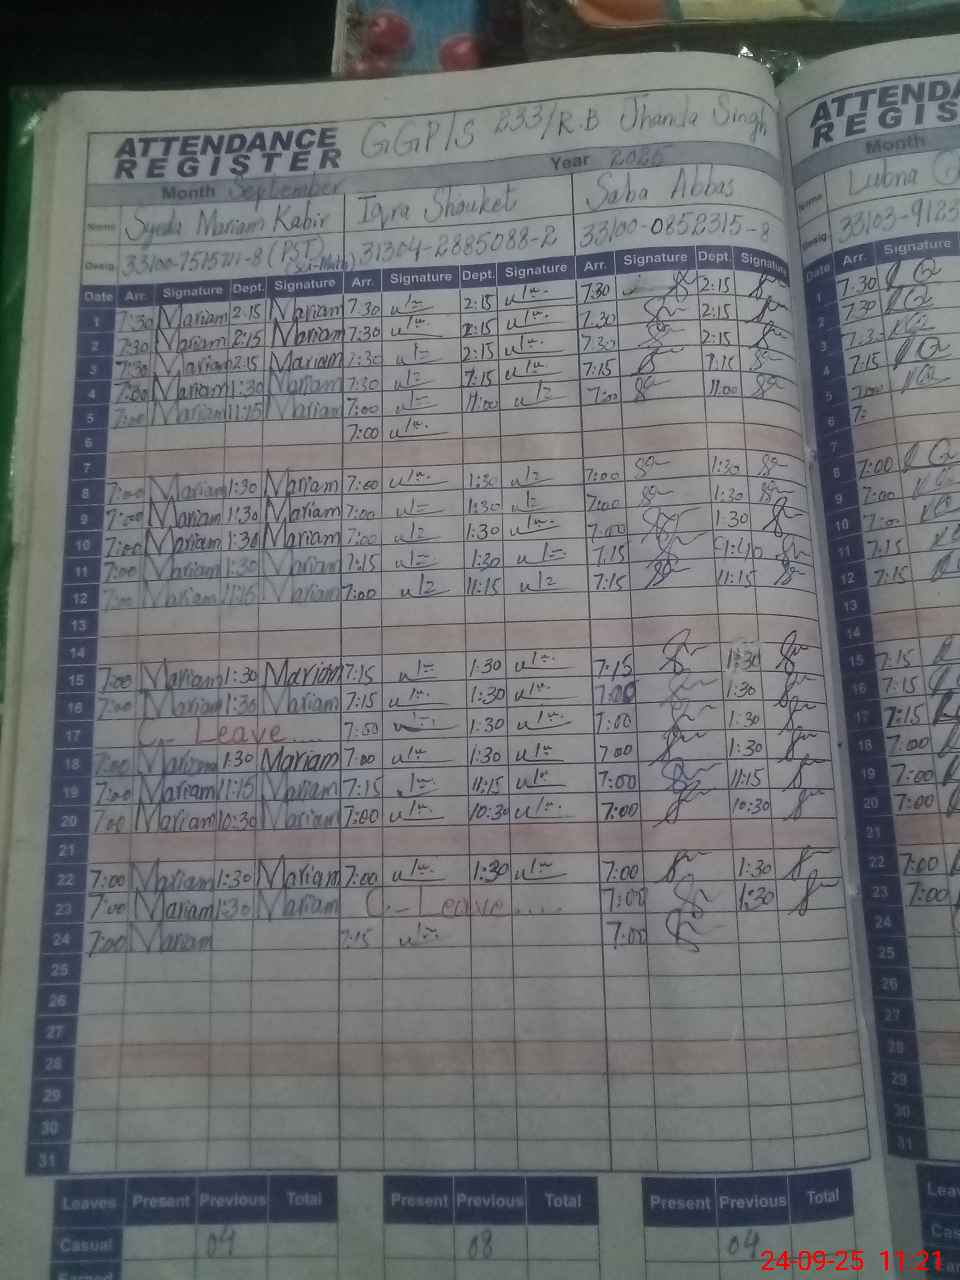 ATTENDANCE REGISTER GGP/S 233/R.B Jhanda Singh
Month September Year 2025
Name Syeda Mariam Kabir Iqra Shouket Saba Abbas
Desig. 33100-7515711-8 (PST) (Sci-Math) 31304-2885088-2 33100-0852315-8
Date Arr. Signature Dept. Signature Arr. Signature Dept. Signature Arr. Signature Dept. Signature
1 7:30 Mariam 2:15 Mariam 7:30 2:15 7:30 2:15
2 7:30 Mariam 2:15 Mariam 7:30 2:15 7:30 2:15
3 7:30 Mariam 2:15 Mariam 7:30 2:15 7:30 2:15
4 7:00 Mariam 1:30 Mariam 7:30 7:15 7:15 7:15
5 7:00 Mariam 11:15 Mariam 7:00 11:00 7:00 11:00
6 7:00
7
8 7:00 Mariam 1:30 Mariam 7:00 1:30 7:00 1:30
9 7:00 Mariam 1:30 Mariam 7:00 1:30 7:00 1:30
10 7:00 Mariam 1:30 Mariam 7:00 1:30 7:00 1:30
11 7:00 Mariam 1:30 Mariam 7:15 1:30 7:15
12 7:00 Mariam 11:15 Mariam 7:00 11:15 7:15 11:15
13
14
15 7:00 Mariam 1:30 Mariam 7:15 1:30 7:15 1:30
16 7:00 Mariam 1:30 Mariam 7:15 1:30 7:00 1:30
17 C- Leave.... 7:00 1:30 7:00 1:30
18 7:00 Mariam 1:30 Mariam 7:00 1:30 7:00 1:30
19 7:00 Mariam 11:15 Mariam 7:15 11:15 7:00 11:15
20 7:00 Mariam 10:30 Mariam 7:00 10:30 7:00 10:30
21
22 7:00 Mariam 1:30 Mariam 7:00 1:30 7:00 1:30
23 7:00 Mariam 1:30 Mariam C-Leave.... 7:00 1:30
24 7:00 Mariam 7:15 7:00
25
26
27
28
29
30
31
Leaves Present Previous Total Present Previous Total Present Previous Total
Casual 04 08 04
Earned
ATTENDA
REGIS
Month
Name Lubna
Desig. 33103-9125
Date Arr. Signature
1 7:30
2 7:30
3 7:30
4 7:15
5 7:00
6 7:
7
8 7:00
9 7:00
10 7:00
11 7:15
12 7:15
13
14
15 7:15
16 7:15
17 7:15
18 7:00
19 7:00
20 7:00
21
22 7:00
23 7:00
24
25
26
27
28
29
30
31
Leav
Cas
24-09-25 11:21